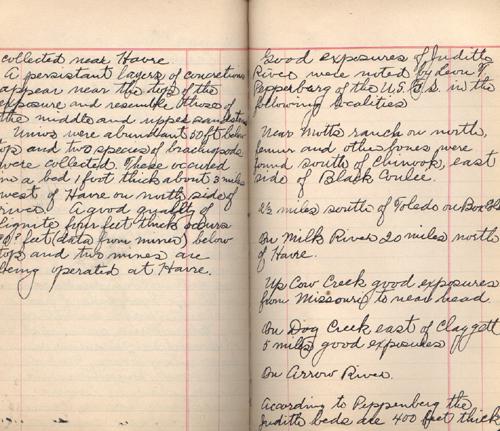 collected near Havre
A persistant layers of concretions
appear near the top of the
exposure and resemble those of
the middle and upper sandstone
Unios were abundant 50 ft below
top and two species of brachiopods
were collected. These occured
in a bed 1 foot thick about 3 miles
west of Havre on north side of
river. A good quality of
lignite four feet thick occurs
feet (data from mines) below
top and two mines are
being operated at Havre.
Good exposures of Judith
River were noted by Leon J.
Pepperberg of the U.S.G.S. in the
following localities
Near Mutts ranch on north,
femur and other bones were
found south of Chinook, east
side of Black Coulee.
2½ miles south of Toledo on Box Elder
On Milk River 20 miles north
of Havre.
Up Cow Creek good exposures
from Missouri to near head
On Dog Creek east of Claggett
5 miles good exposures
On Arrow River.
According to Peppenberg the
Judith beds are 400 feet thick